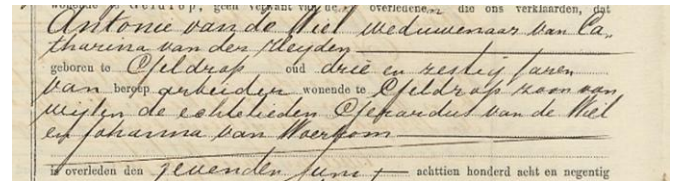 wonende te Geldrop, geen verwant van de overledene, die ons verklaarden, dat
Antonie van de Wiel weduwenaar van Ca-
tharina van der Heyden
geboren te Geldrop oud drie en zestig jaren
van beroep arbeider wonende te Geldrop zoon van
wijlen de echtelieden Gerardus van de Wiel
en Johanna van Woerkom
is overleden den zevenden Juni achttien honderd acht en negentig